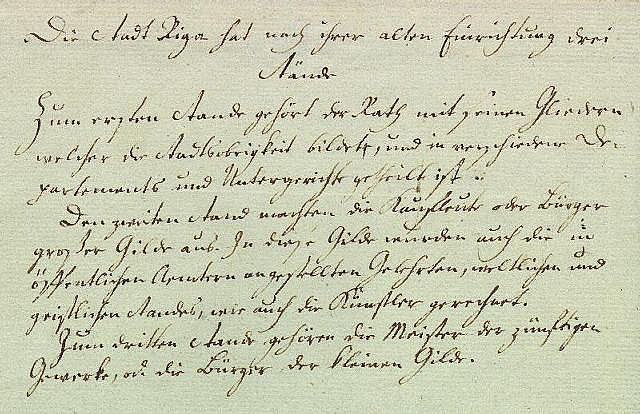 Die Stadt Riga hat nach ihrer alten Einrichtung drei
Stände
Zum ersten Stande gehört der Rath mit seinen Gliedern
welcher die Stadtobrigkeit bildet, und in verschiedene De-
partements und Untergerichte getheilt ist.
Den zweiten Stand machten die Kaufleute oder Bürger
großer Gilde aus. In diese Gilde wurden auch die in
öffentlichen Aemtern angestellten Gelehrten, weltlichen und
geistlichen Standes, wie auch die Künstler gerechnet.
Zum dritten Stande gehören die Meister der zünftigen
Gewerke, od. die Bürger der kleinen Gilde.